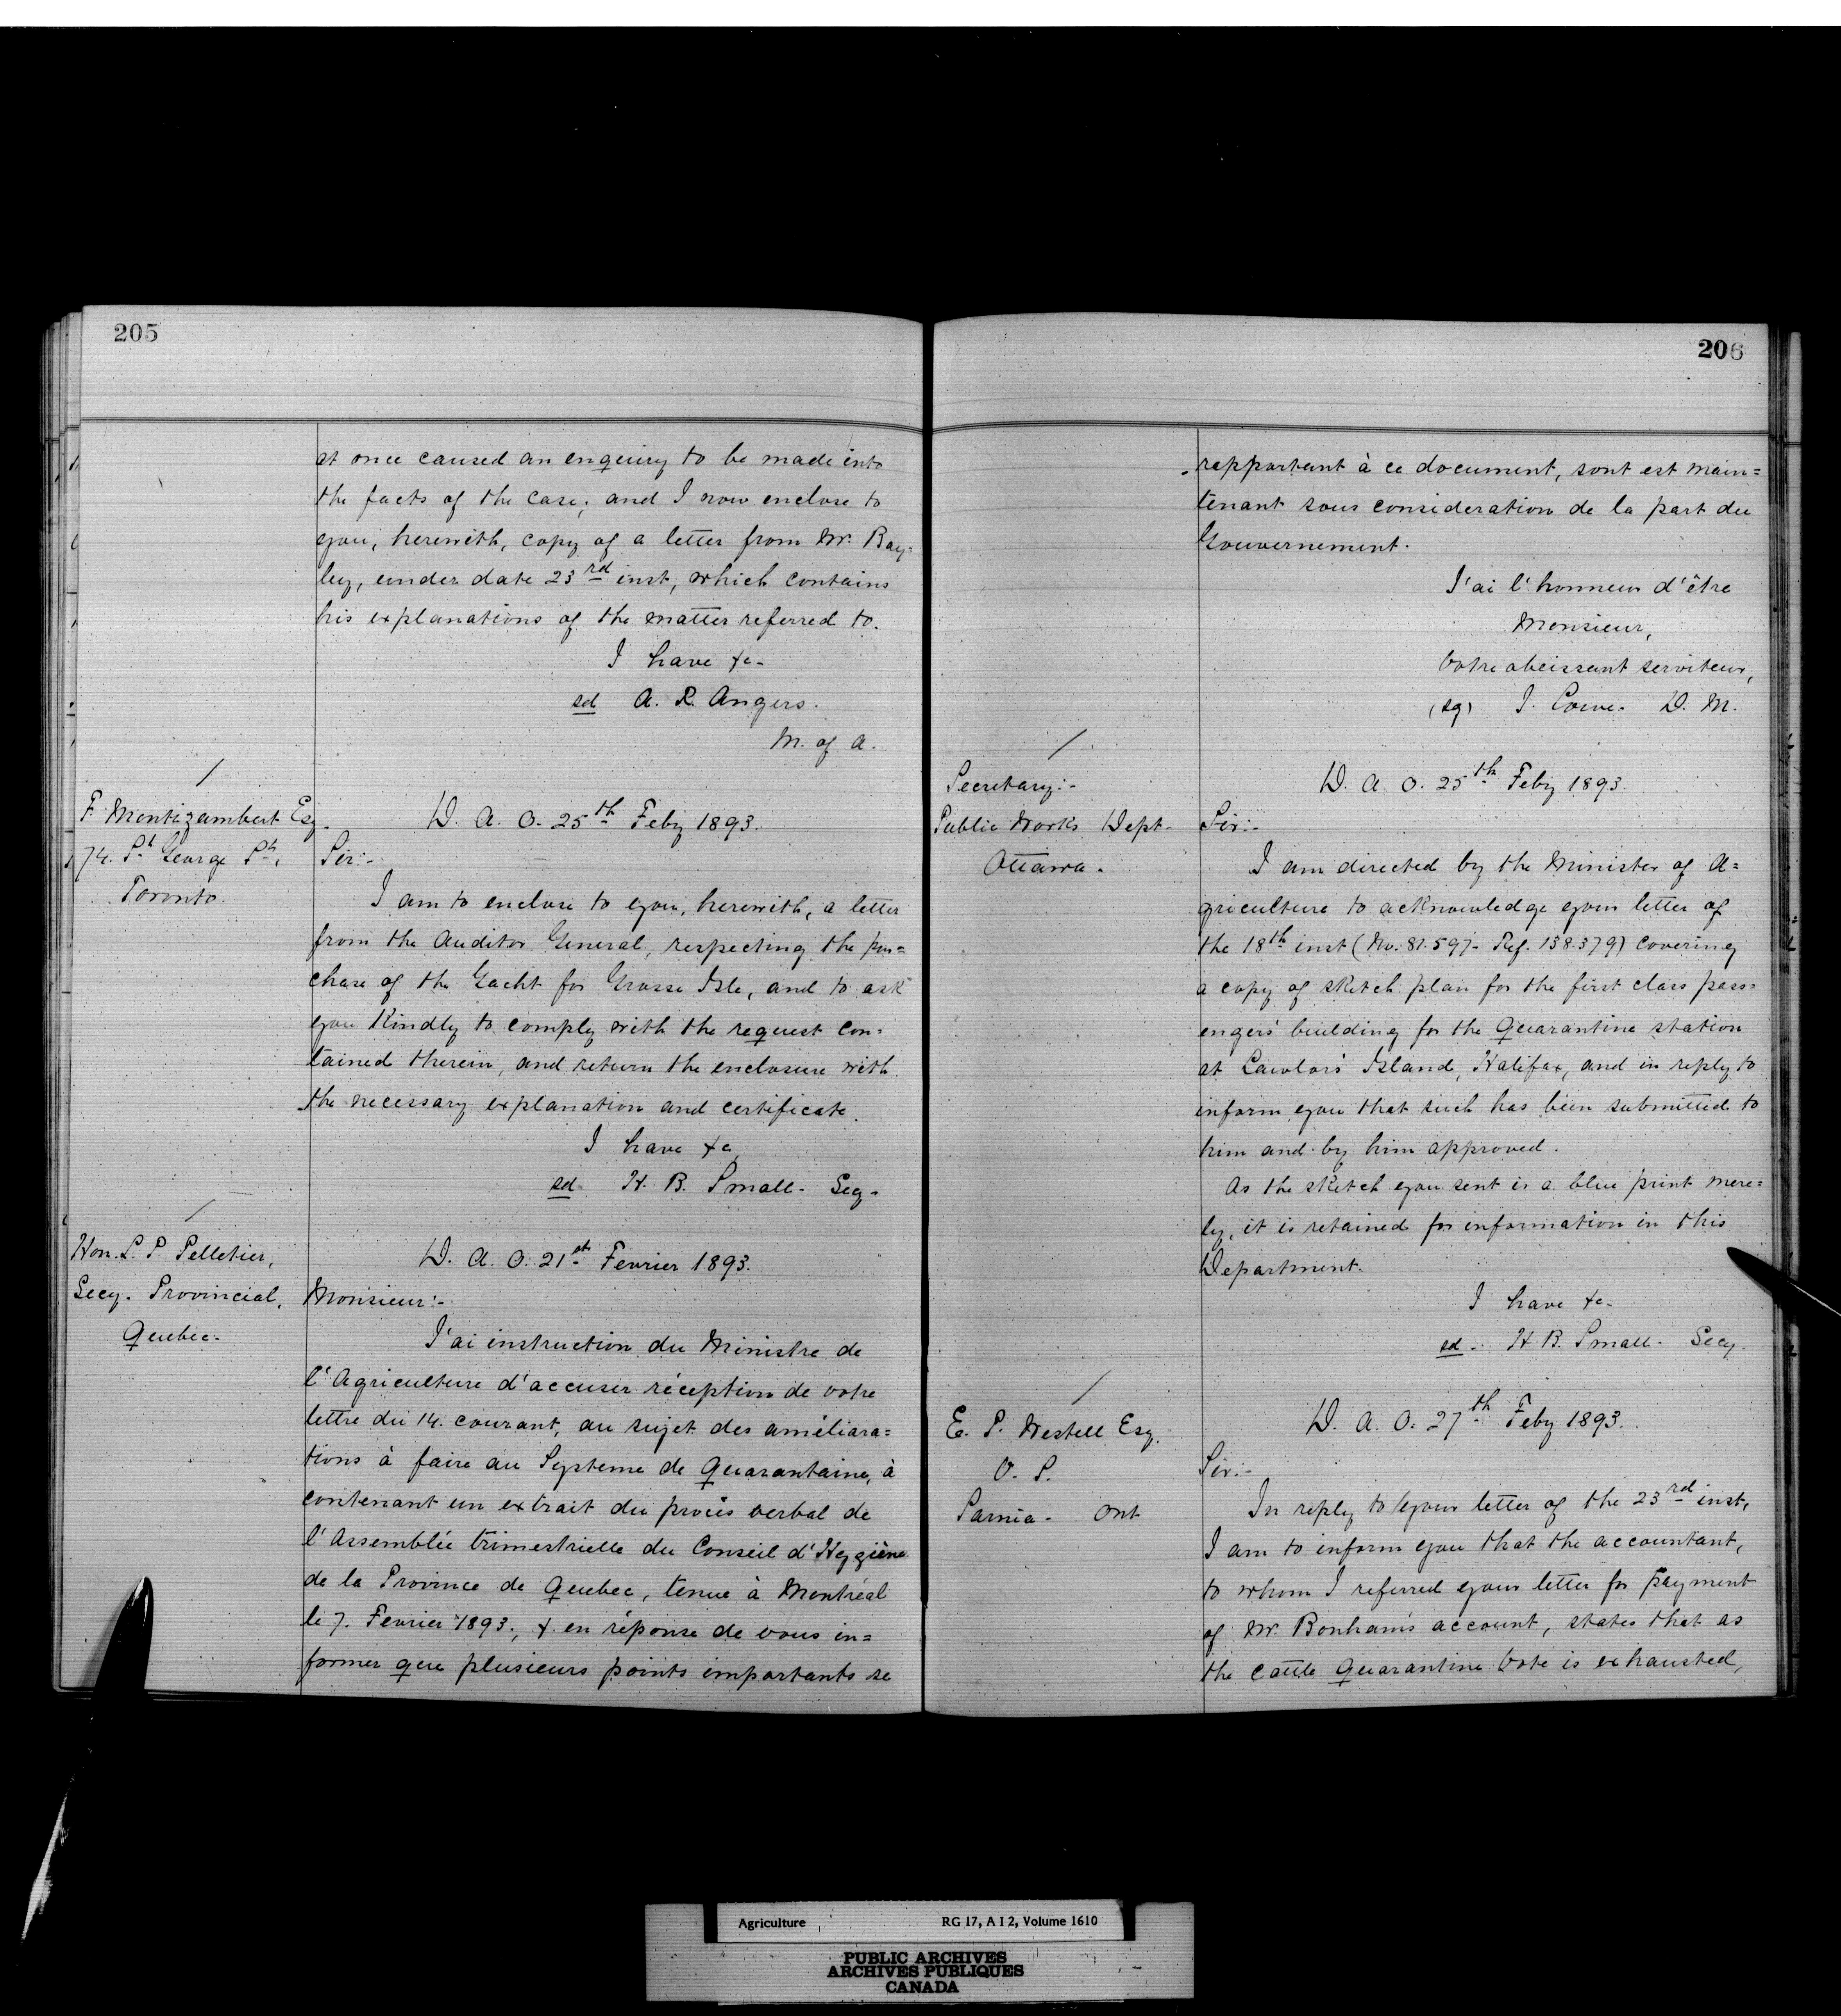 205
at once caused an enquiry to be made into
the facts of the case; and I now enclose to
you, herewith, copy of a letter from Mr. Bay=
ley, under date 23rd inst, which contains
his explanations of the matter referred to.
I have &c-
sd A. R. Angers.
M. of A.
F. Montizambert Esq.
74. St George St,
Toronto.
D. A. O. 25th Feby 1893.
Sir:-
I am to enclose to you, herewith, a letter
from the Auditor General, respecting the pur=
chase of the Yacht for Grosse Isle, and to ask
you Kindly to comply with the request con=
tained therein, and return the enclosure with
the necessary explanation and certificate.
I have &c
sd. H. B. Small- Secy-
Hon. L. P. Pelletier,
Secy. Provincial,
Quebec-
D. A. O. 21st Fevrier 1893.
Monsieur:-
J'ai instruction du Ministre de
l'Agriculture d'accuser réception de votre
lettre du 14. courant, au sujet des améliora=
tions à faire au Systeme de Quarantaine, à
contenant un extrait du procès verbal de
l'Assemblée trimestrielle du Conseil d'Hygiène
de la Province de Quebec, tenue à Montréal
le 7. Fevrier 1893., & en réponse de vous in=
former que plusieurs points importants se
206
rapportant à ce document, sont est main=
tenant sous consideration de la part du
Gouvernement.
J'ai l'honneur d'être
Monsieur,
Votre obeissant serviteur,
(sg) J. Lowe. D. M.
Secretary:-
Public Works Dept-
Ottawa.
D. A. O. 25th Feby 1893.
Sir:-
I am directed by the Minister of A=
griculture to acknowledge your letter of
the 18th inst (No. 81.597- Ref. 138.379) covering
a copy of sketch plan for the first class pass=
engers' building for the Quarantine station
at Lawlors' Island, Halifax, and in reply to
inform you that such has been submitted to
him and by him approved.
As the sketch you sent is a blue print mere=
ly, it is retained for information in this
Department.
I have &c-
sd. H. B. Small- Secy.
E. P. Westell Esq.
V. S.
Sarnia- Ont
D. A. O. 27th Feby 1893.
Sir:-
In reply to your letter of the 23rd inst,
I am to inform you that the accountant,
to whom I referred your letter for payment
of Mr. Bonham's account, states that as
the Cattle Quarantine Vote is exhausted,
Agriculture RG 17, A I 2, Volume 1610
PUBLIC ARCHIVES
ARCHIVES PUBLIQUES
CANADA